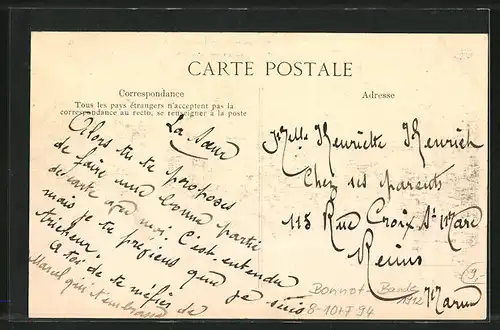 CARTE POSTALE
Correspondance
Tous les pays étrangers n'acceptent pas la
correspondance au recto, se renseigner à la poste
Adresse
La Sœur
Alors tu te proposes
de faire une bonne partie
de carte avec moi. C'est entendu
mais je te préviens que je suis
tricheur.
A toi de te méfier de
Marcel qui t'embrasse
Melle Henriette Henrich
Chez ses parents
115 Rue Croix St Marc
Reims
Marne
Bonnot - Bande
1912
8-10+7 94
9.-